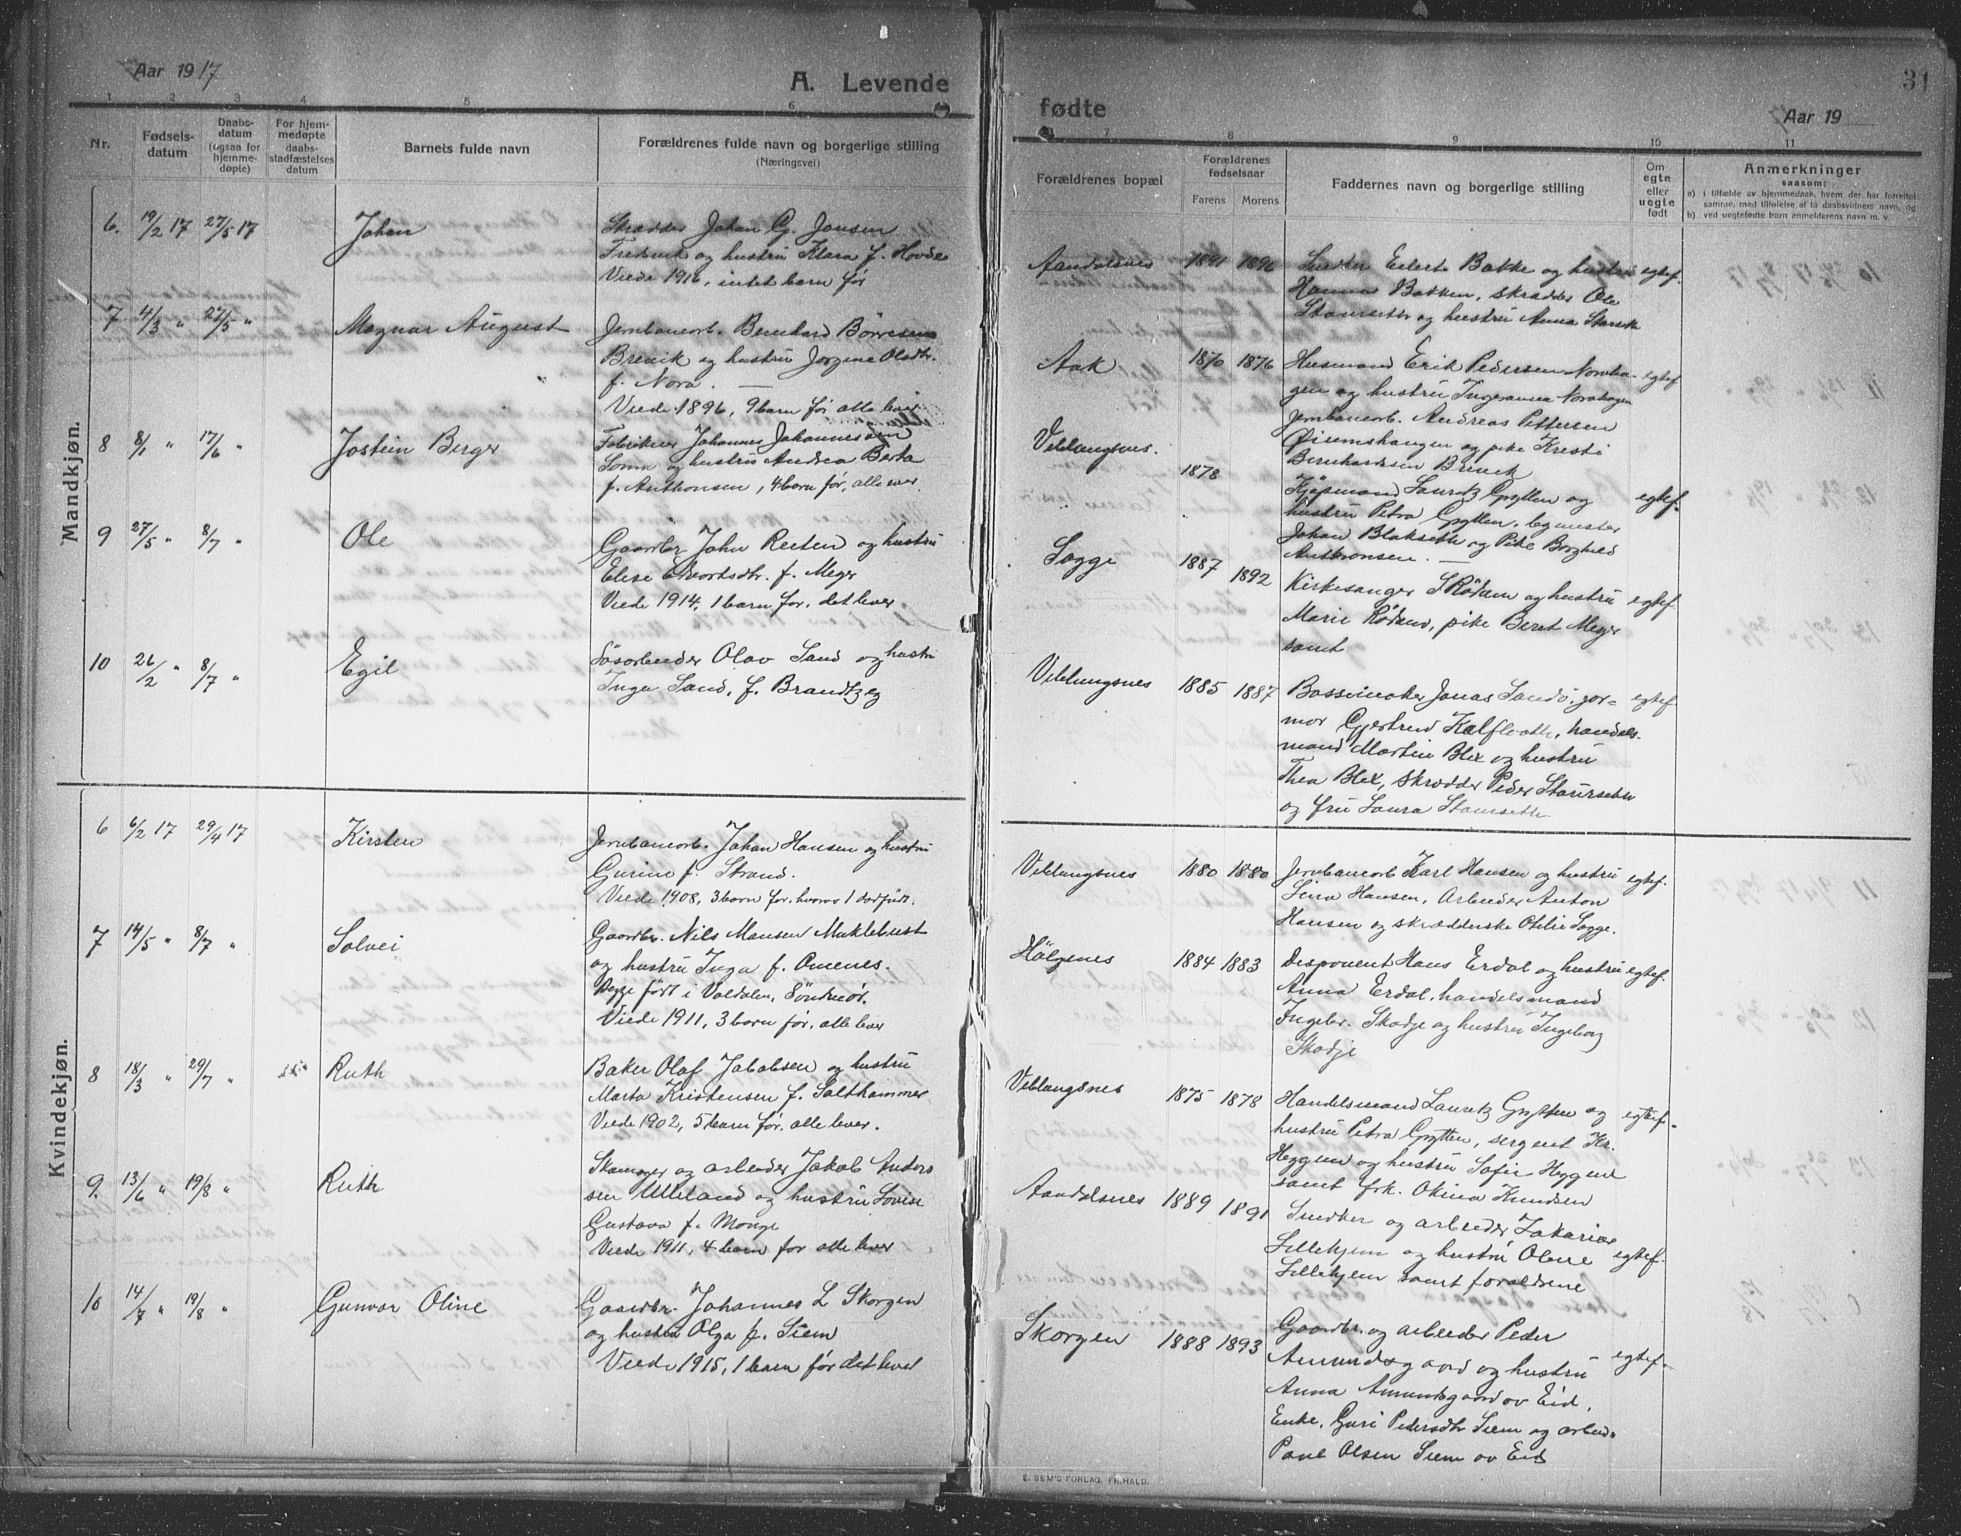 Aar 1917
A. Levende
1 2 3 4 5 6
Nr.
Fødsels-
datum
Daabs-
datum
(ogsaa for
hjemme-
døpte)
For hjem-
medøpte
daabs-
stadfæstelses
datum
Barnets fulde navn
Forældrenes fulde navn og borgerlige stilling
(Næringsvei)
Mandkjøn.
6. 19/2 17 27/5 17 Johan
Skrædder Johan G. Jonsen
Fredevik og hustru Klara f. Hovde
Viede 1916, intet barn før
7 4/3 " 27/5 " Magnar August
Jernbanearb. Bernhard Børresen
Brevik og hustru Jorgine Olsdtr.
f. Nora. —
Viede 1896, 9 barn før alle lever
8 8/1 " 17/6 " Jostein Berger
Fabrikeier Johannes Johannessen
og hustru Andrea Berta
f. Anthonsen, 4 barn før, alle lever
9 27/5 " 8/7 " Ole
Gaardbr. John Reiten og hustru
Elise Edvartsdtr. f. Meger
Viede 1914, 1 barn før, det lever
10 26/2 " 8/7 " Egil
Løsarbeider Olav Sand og hustru
Inga Sand, f. Brandtzeg
Kvindekjøn.
6 6/2 17 29/4 17 Kirsten
Jernbanearb. Johan Hansen og hustru
Gurine f. Strand.
Viede 1908, 3 barn før, hvorav 1 dødfødt.
7 14/5 " 8/7 " Solvei
Gaardbr. Nils Mansen Muklebust
og hustru Inga f. Omenes.
Begge født i Valdalen, Søndmør.
Viede 1911, 3 barn før, alle lever
8 18/3 " 29/7 " Ruth
Baker Olaf Jakobsen og hustru
Marta Kristensen f. Salthammer
Viede 1902, 5 barn før, alle lever.
9. 13/6 " 19/8 " Ruth
Skomager og arbeider Jakob Anders
sen Ulleland og hustru Lovise
Gustava f. Monge
Viede 1911, 4 barn før alle lever
10 14/7 " 19/8 " Gunvor Oline
Gaardbr. Johannes L Skorgen
og hustru Olga f. Siem
Viede 1915, 1 barn før det lever
31
fødte
Aar 19
7 8 9 10 11
Forældrenes bopæl
Forældrenes
fødselsaar
Farens Morens
Faddernes navn og borgerlige stilling
Om
egte
eller
uegte
født
Anmerkninger
saasom:
a) i tilfælde av hjemmedaab, hvem der har forrettet
samme, med tilføielse af to daabsvidners navn, og
b) ved uegtefødte barn anmelderens navn m. v.
Aandalsnes 1891 1896 Smeden Edert Bakke og hustru egtef.
Hanna Bakken, skrædder Ole
Stamseth og hustru Anna Stamseth
Aak 1870 1876 Husmand Erik Pedersen Noraha- egtef
gen og hustru Ingeranna Norahagen
Jernbanearb. Andreas Pettersen
Øiremshaugen og pike Kresti
Bernhardsen Brevik
Veblungsnes. 1878
Kjøpmand Lauretz Grytten og egtef.
hustru Petra Grytten, bymester
Johan Blakseth og Pike Borghild
Anthonsen. —
Sogge 1887 1892 Kirkesanger S Rødven og hustru egtef
Marie Rødven, pike Beret Meger
samt
Veblungsnes 1885 1887 Bøssemaker Jonas Sandø, jor- egtef
mor Gjertrud Kalflaath, handels-
mand Martin Blex og hustru
Thea Blex, skrædder Peder Staurseth
og fru Laura Stamseth
Veblungsnes 1880 1880 Jernbanearb Karl Hansen og hustru egtef.
Lina Hansen, Arbeider Anton
Hansen og skrædderske Otilie Sogge.
Hølgenes 1884 1883 Disponent Hans Erdal og hustru egtef.
Anna Erdal, handelsmand
Ingebr. Skodje og hustru Ingeborg
Skodje
Veblungsnes 1875 1878 Handelsmand Lauretz Grytten og egtef.
hustru Petra Grytten, sergent Kr.
Heggem og hustru Sofie Heggem
samt frk. Okina Knudsen
Aandalsnes 1889 1891 Snedker og arbeider Zakarias
Lillehjem og hustru Oline egtef.
Lillehjem samt forældrene
Skorgen 1888 1893 Gaardbr. og arbeider Peder
Amundsgaard og hustru egtef.
Anna Amundsgaard av Eid,
Enke. Guri Pedersdtr Siem og arbeid.
Paul Olsen Siem av Eid
E. SEM'S FORLAG, FR.HALD.